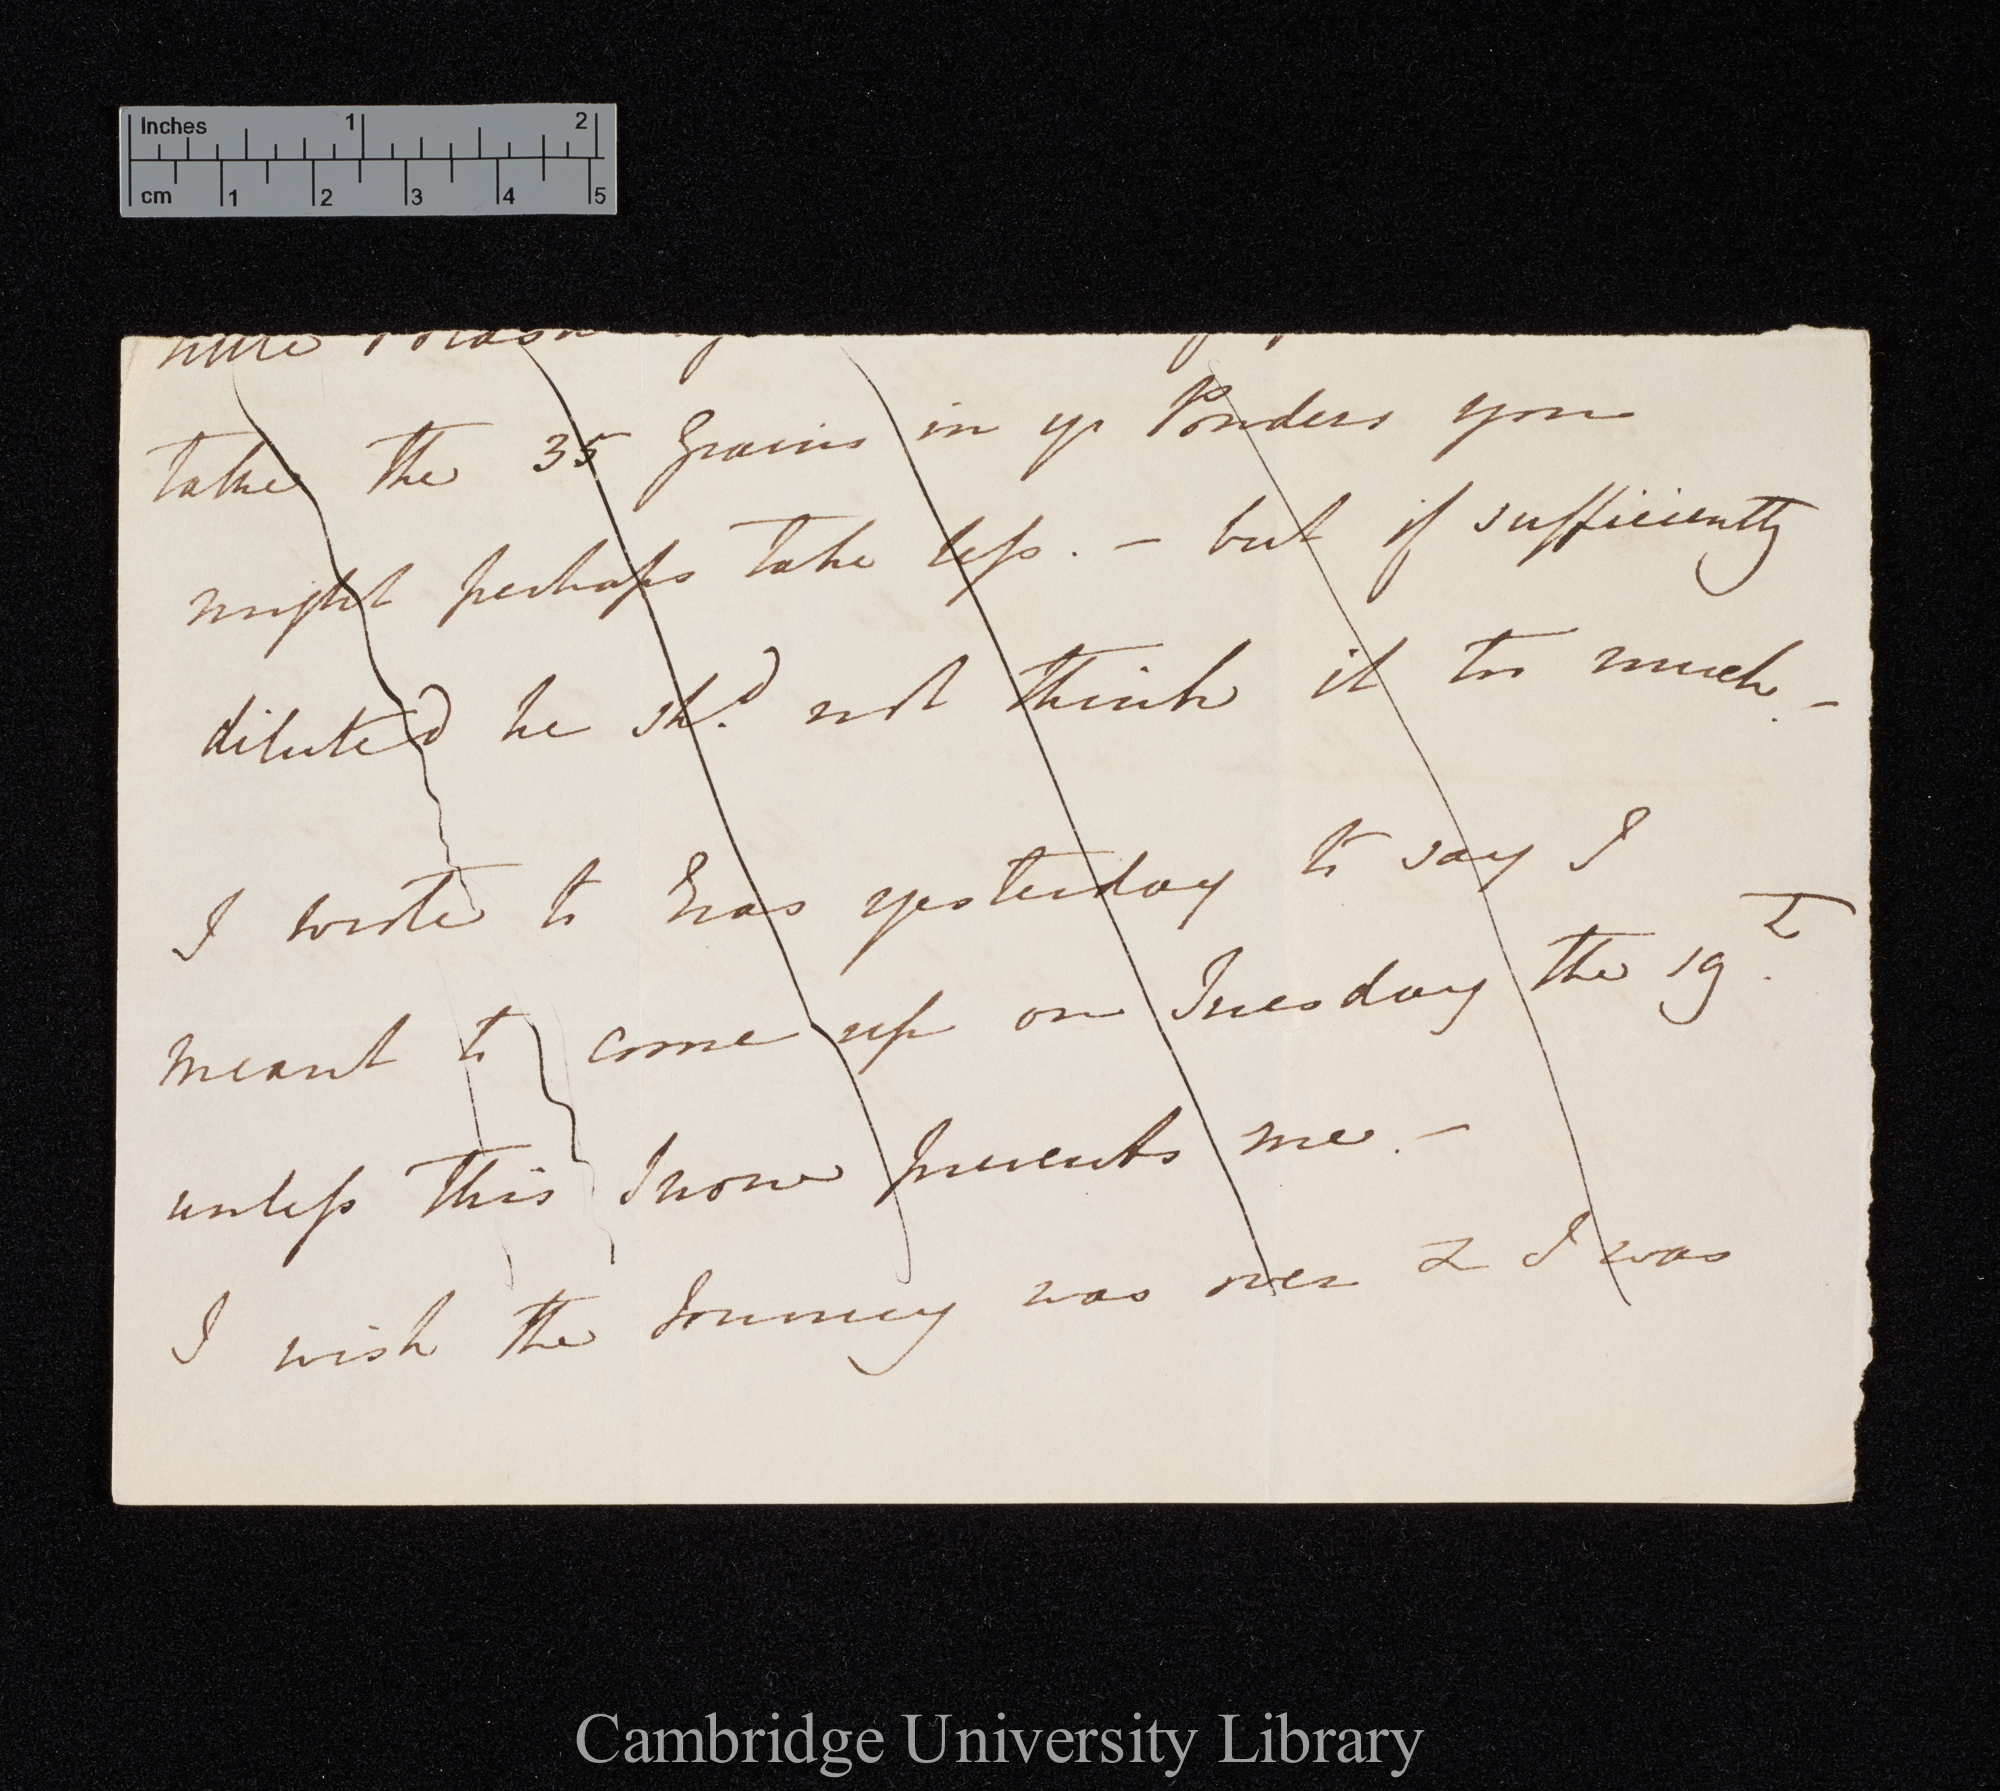 Inches 1 2
cm 1 2 3 4 5
take the 35 Grains in yr Powders you
might perhaps take less. – but if sufficiently
diluted he shd. not think it too much. –
I wrote to Eras yesterday to say I
meant to come up on Tuesday the 19th.
unless this Snow prevents me. –
I wish the Journey was over & I was
Cambridge University Library